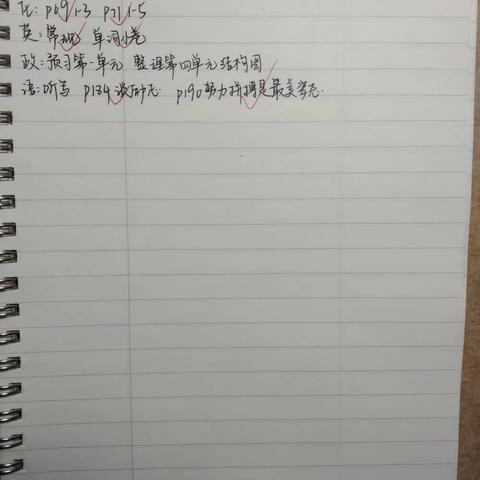 化: P69 1-3 P71 1-5
英: 常规 单词小卷
政: 预习第一单元 整理第四单元结构图
语: 听写 P134 P190 努力拼搏是最美姿态.